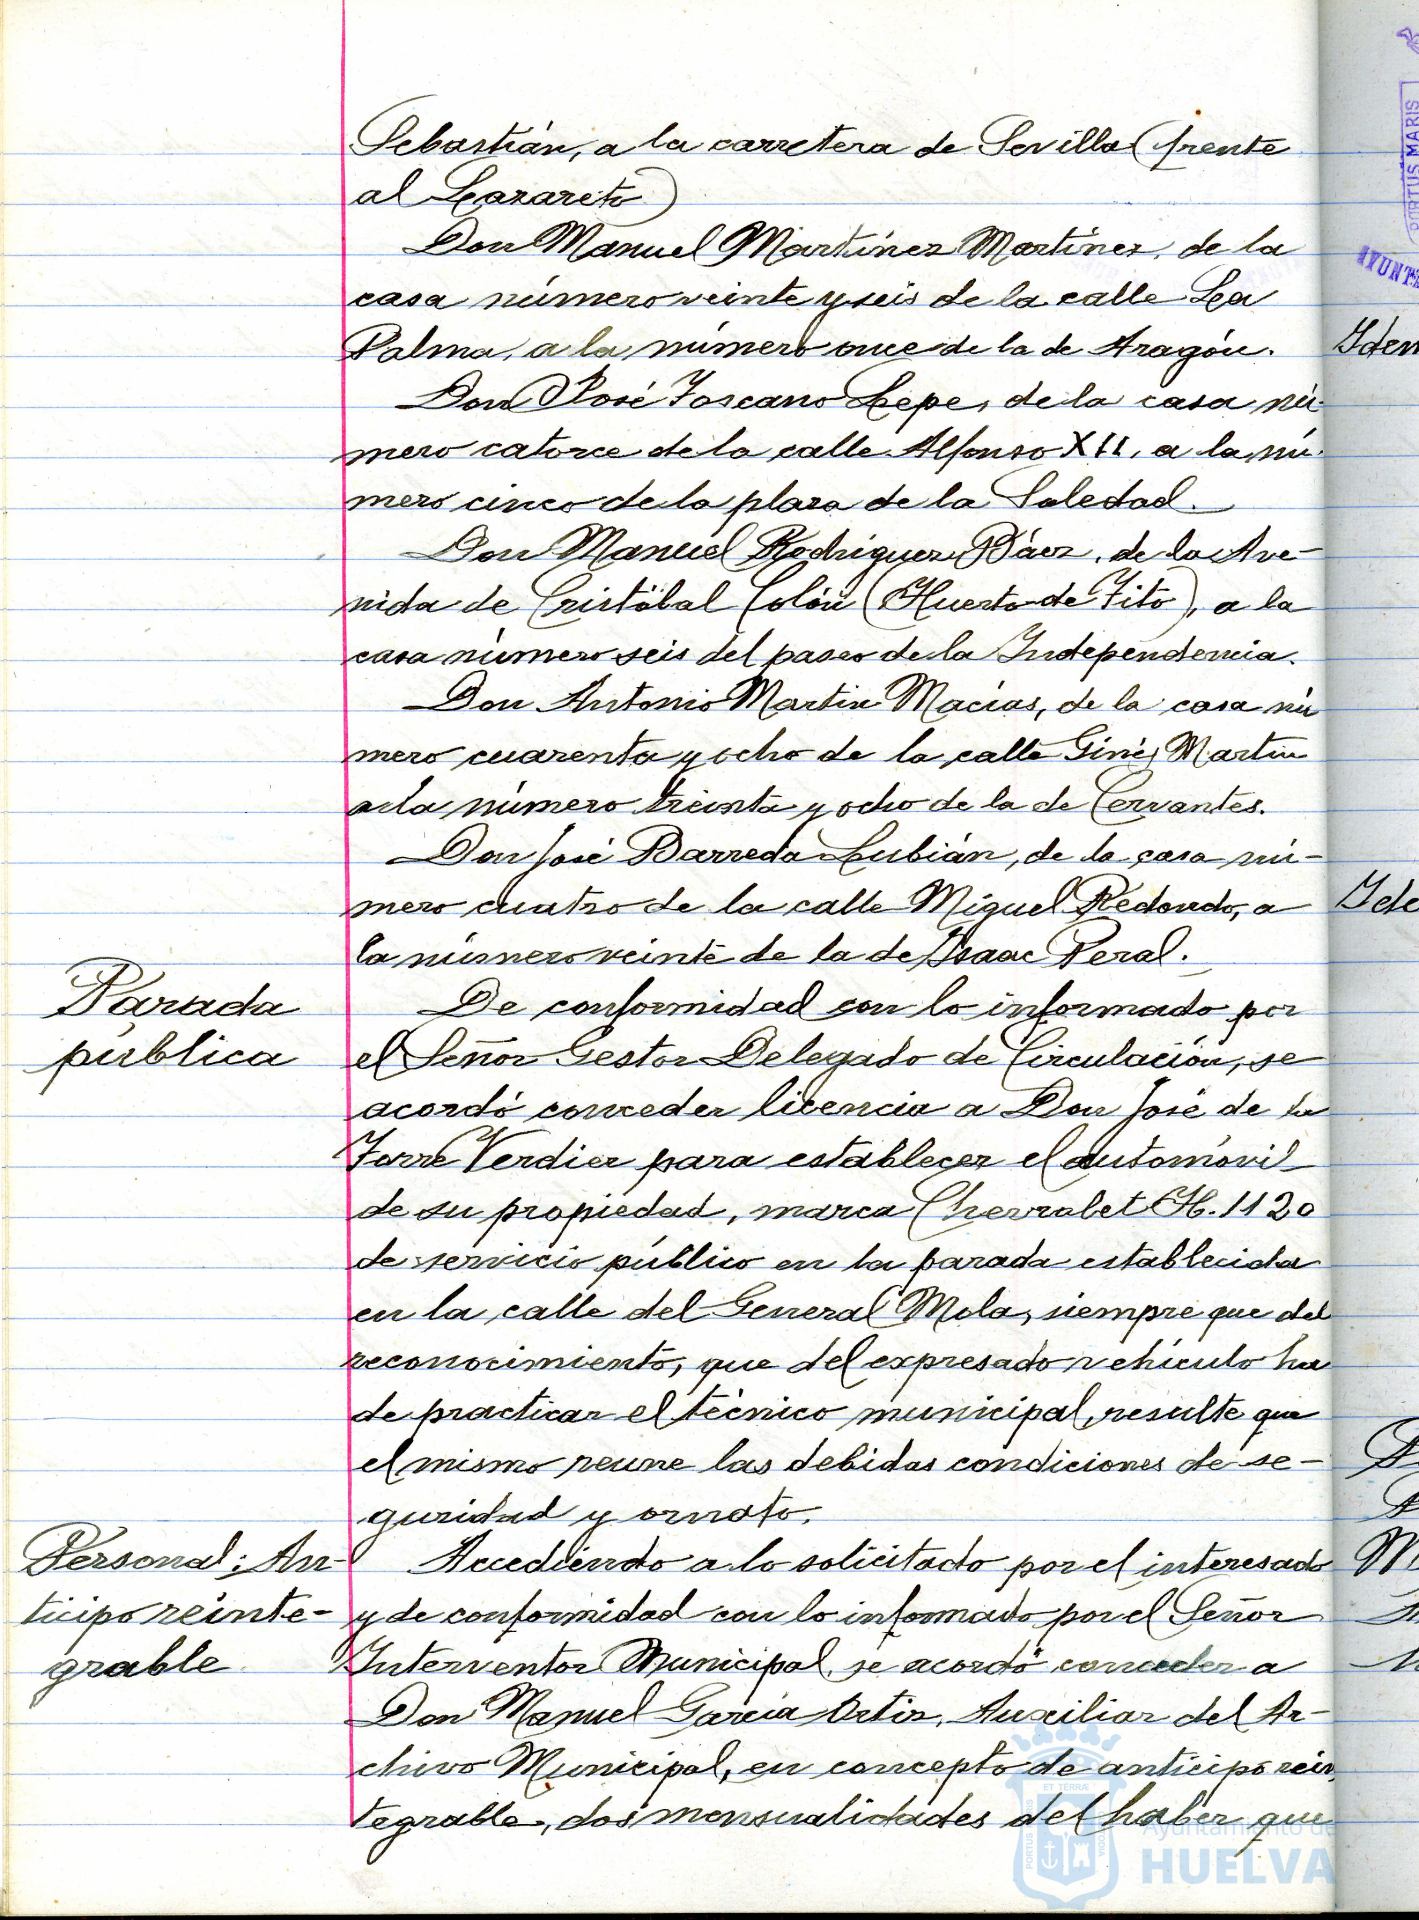 Sebastián, a la carretera de Sevilla (frente
al Lazareto)
Don Manuel Martínez Martínez, de la
casa número veinte y seis de la calle La
Palma, a la número once de la de Aragón.
Don José Toscano Lepe, de la casa nú-
mero catorce de la calle Alfonso XII, a la nú-
mero cinco de la plaza de la Soledad.
Don Manuel Rodríguez Báez, de la Ave-
nida de Cristóbal Colón (Huerto de Tito), a la
casa número seis del paseo de la Independencia.
Don Antonio Martin Macías, de la casa nú
mero cuarenta y ocho de la calle Ginés Martín
a la número treinta y ocho de la de Cervantes.
Don José Barreda Lubián, de la casa nú-
mero cuatro de la calle Miguel Redondo, a
la número veinte de la de Isaac Peral.
Parada
pública
De conformidad con lo informado por
el Señor Gestor Delegado de Circulación, se
acordó conceder licencia a Don José de la
Torre Verdier para establecer el automóvil
de su propiedad, marca Chevrolet H. 1120
de servicio público en la parada establecida
en la calle del General Mola, siempre que del
reconocimiento, que del expresado vehículo ha
de practicar el técnico municipal, resulte que
el mismo reune las debidas condiciones de se-
guridad y ornato.
Personal: An-
ticipo reinte-
grable
Accediendo a lo solicitado por el interesado
y de conformidad con lo informado por el Señor
Interventor Municipal, se acordó conceder a
Don Manuel García Ortiz, Auxiliar del Ar-
chivo Municipal, en concepto de anticipo rein
tegrable, dos mensualidades del haber que
Ayuntamiento de
HUELVA
PORTUS MARIS
ET TERRAE
PORTUS MARIS
AYUNT
Idem
Ide